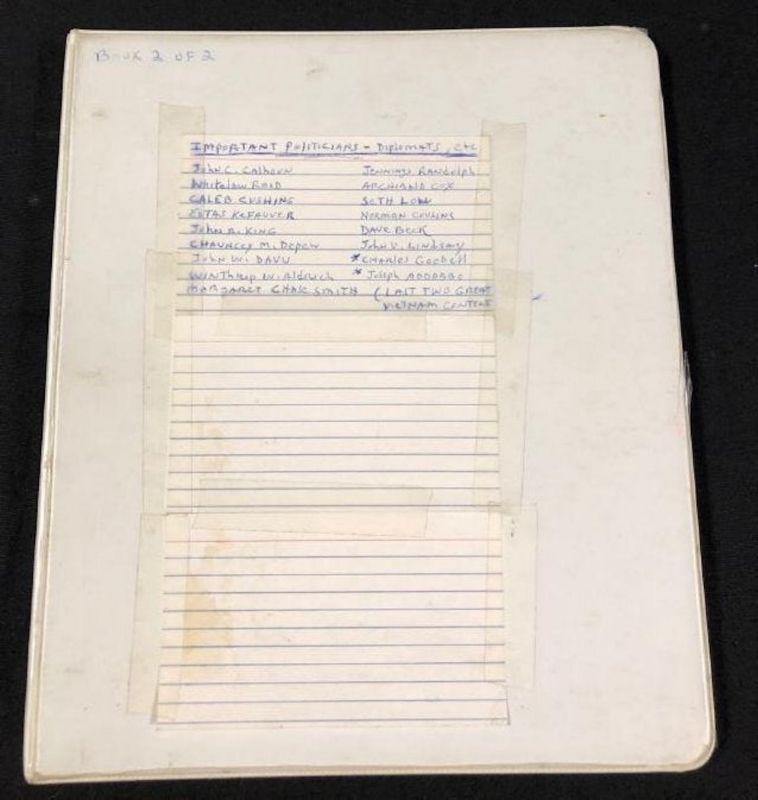 Book 2 OF 2
IMPORTANT POLITICIANS - DIPLOMATS, etc
John C. Calhoun
Whitelaw REID
CALEB CUSHING
ESTAS KEFAUVER
John A. KING
CHAUNCEY M. Depew
John W. DAVIS
WINThrop W. Aldrich
MARGARET CHASE SMITH
Jennings Randolph
ARCHIBALD COX
SETH LOW
NORMAN COUSINS
DAVE BECK
John V. LINDSAY
*CHARLES Goodell
* Joseph ADDABBO
(LAST TWO GREAT
VIETNAM CONTENT